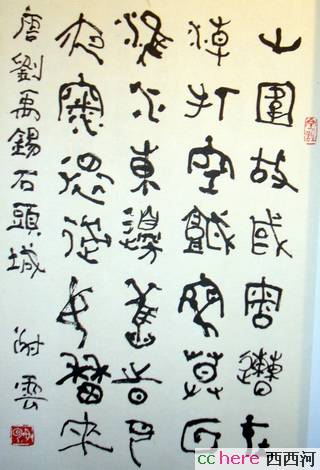 山圍故國周遭在
潮打空城寂寞回
淮水東邊舊時月
夜深還過女牆來
唐劉禹錫石頭城 謝雲
cchere 西西河